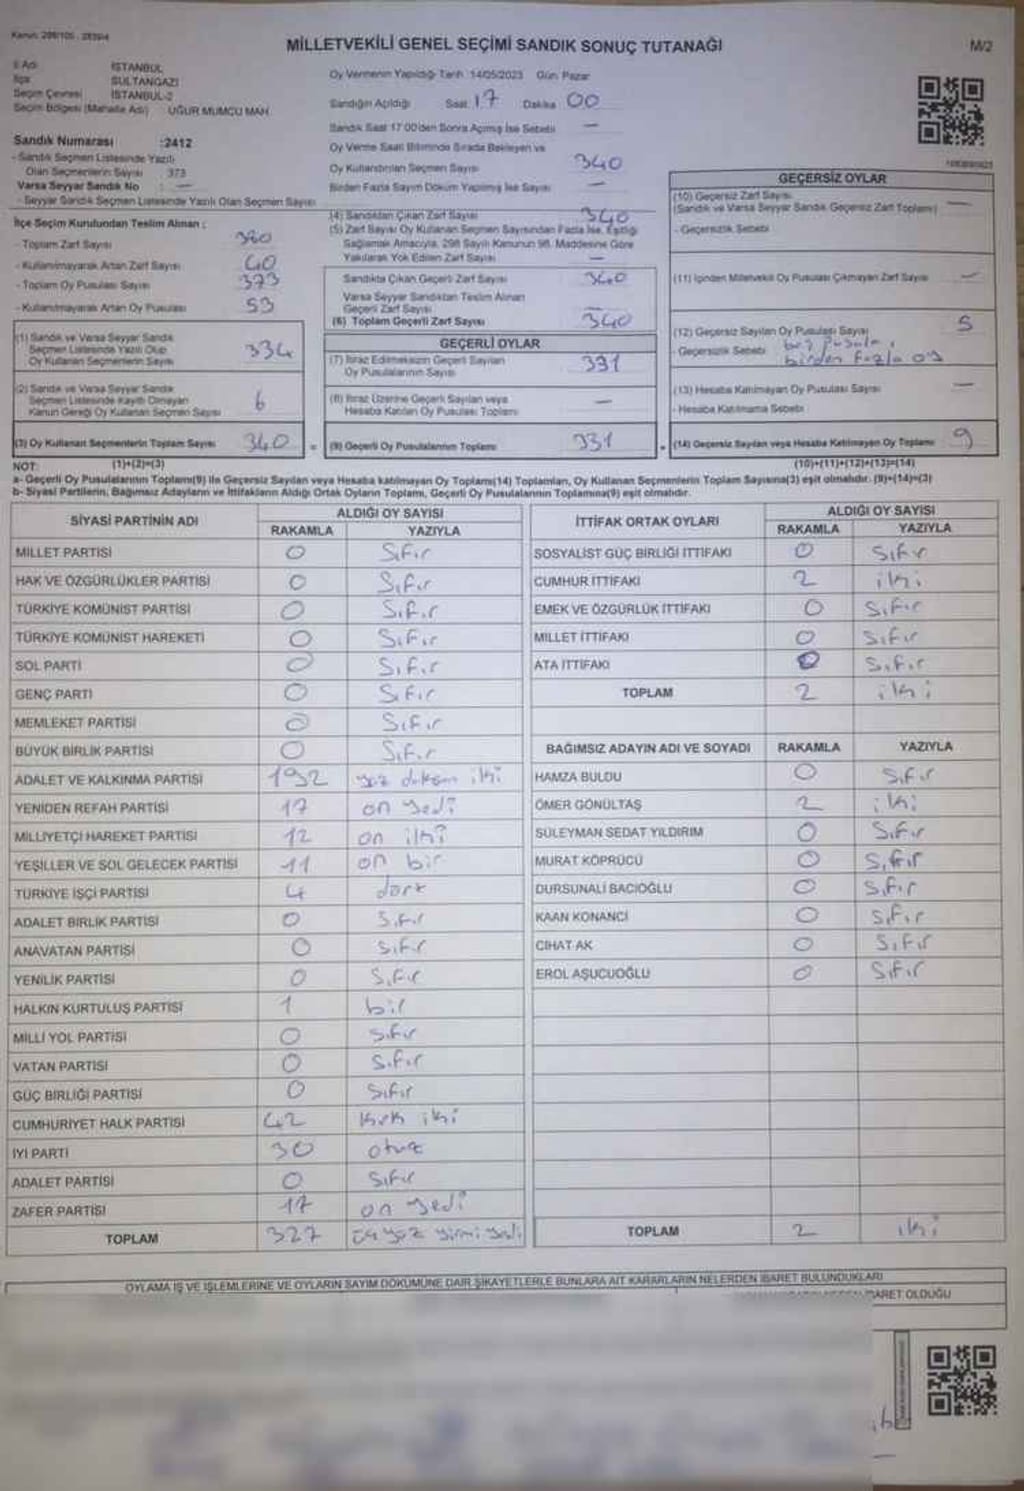 Kanun: 298/105 - 2839/4
MİLLETVEKİLİ GENEL SEÇİMİ SANDIK SONUÇ TUTANAĞI
M/2
İl Adı İSTANBUL
İlçe SULTANGAZİ
Seçim Çevresi İSTANBUL-2
Seçim Bölgesi (Mahalle Adı) UĞUR MUMCU MAH.
Sandık Numarası :2412
- Sandık Seçmen Listesinde Yazılı
Olan Seçmenlerin Sayısı 373
Varsa Seyyar Sandık No : —
- Seyyar Sandık Seçmen Listesinde Yazılı Olan Seçmen Sayısı
İlçe Seçim Kurulundan Teslim Alınan ;
- Toplam Zarf Sayısı 380
- Kullanılmayarak Artan Zarf Sayısı 40
- Toplam Oy Pusulası Sayısı 393
- Kullanılmayarak Artan Oy Pusulası 53
(1) Sandık ve Varsa Seyyar Sandık
Seçmen Listesinde Yazılı Olup
Oy Kullanan Seçmenlerin Sayısı 334
(2) Sandık ve Varsa Seyyar Sandık
Seçmen Listesinde Kayıtlı Olmayan
Kanun Gereği Oy Kullanan Seçmen Sayısı 6
(3) Oy Kullanan Seçmenlerin Toplam Sayısı 340
Oy Vermenin Yapıldığı Tarih :14/05/2023 Gün: Pazar
Sandığın Açıldığı Saat 17 Dakika 00
Sandık Saat 17:00'den Sonra Açılmış İse Sebebi —
Oy Verme Saati Bitiminde Sırada Bekleyen ve
Oy Kullandırılan Seçmen Sayısı 340
Birden Fazla Sayım Döküm Yapılmış İse Sayısı —
(4) Sandıktan Çıkan Zarf Sayısı 340
(5) Zarf Sayısı Oy Kullanan Seçmen Sayısından Fazla İse, Eşitliği
Sağlamak Amacıyla, 298 Sayılı Kanunun 98. Maddesine Göre
Yakılarak Yok Edilen Zarf Sayısı —
Sandıkta Çıkan Geçerli Zarf Sayısı 340
Varsa Seyyar Sandıktan Teslim Alınan
Geçerli Zarf Sayısı
(6) Toplam Geçerli Zarf Sayısı 340
GEÇERLİ OYLAR
(7) İtiraz Edilmeksizin Geçerli Sayılan
Oy Pusulalarının Sayısı 331
(8) İtiraz Üzerine Geçerli Sayılan veya
Hesaba Katılan Oy Pusulası Toplamı —
(9) Geçerli Oy Pusulalarının Toplamı 331
GEÇERSİZ OYLAR
(10) Geçersiz Zarf Sayısı
(Sandık ve Varsa Seyyar Sandık Geçersiz Zarf Toplamı) —
- Geçersizlik Sebebi
(11) İçinden Milletvekili Oy Pusulası Çıkmayan Zarf Sayısı —
(12) Geçersiz Sayılan Oy Pusulası Sayısı
- Geçersizlik Sebebi birden fazla oy
(13) Hesaba Katılmayan Oy Pusulası Sayısı —
- Hesaba Katılmama Sebebi
(14) Geçersiz Sayılan veya Hesaba Katılmayan Oy Toplamı 9
NOT: (1)+(2)=(3) (10)+(11)+(12)+(13)=(14)
a- Geçerli Oy Pusulalarının Toplamı(9) ile Geçersiz Sayılan veya Hesaba katılmayan Oy Toplamı(14) Toplamları, Oy Kullanan Seçmenlerin Toplam Sayısına(3) eşit olmalıdır. (9)+(14)=(3)
b- Siyasi Partilerin, Bağımsız Adayların ve İttifakların Aldığı Ortak Oyların Toplamı, Geçerli Oy Pusulalarının Toplamına(9) eşit olmalıdır.
SİYASİ PARTİNİN ADI ALDIĞI OY SAYISI
RAKAMLA YAZIYLA
MİLLET PARTİSİ 0 Sıfır
HAK VE ÖZGÜRLÜKLER PARTİSİ 0 Sıfır
TÜRKİYE KOMÜNİST PARTİSİ 0 Sıfır
TÜRKİYE KOMÜNİST HAREKETİ 0 Sıfır
SOL PARTİ 0 Sıfır
GENÇ PARTİ 0 Sıfır
MEMLEKET PARTİSİ 0 Sıfır
BÜYÜK BİRLİK PARTİSİ 0 Sıfır
ADALET VE KALKINMA PARTİSİ 192 yüz doksan iki
YENİDEN REFAH PARTİSİ 17 on yedi
MİLLİYETÇİ HAREKET PARTİSİ 12 on iki
YEŞİLLER VE SOL GELECEK PARTİSİ 11 on bir
TÜRKİYE İŞÇİ PARTİSİ 4 dört
ADALET BİRLİK PARTİSİ 0 Sıfır
ANAVATAN PARTİSİ 0 Sıfır
YENİLİK PARTİSİ 0 Sıfır
HALKIN KURTULUŞ PARTİSİ 1 bir
MİLLİ YOL PARTİSİ 0 Sıfır
VATAN PARTİSİ 0 Sıfır
GÜÇ BİRLİĞİ PARTİSİ 0 Sıfır
CUMHURİYET HALK PARTİSİ 42 kırk iki
İYİ PARTİ 30 otuz
ADALET PARTİSİ 0 Sıfır
ZAFER PARTİSİ 17 on yedi
TOPLAM 327 üç yüz yirmi yedi
İTTİFAK ORTAK OYLARI ALDIĞI OY SAYISI
RAKAMLA YAZIYLA
SOSYALİST GÜÇ BİRLİĞİ İTTİFAKI 0 Sıfır
CUMHUR İTTİFAKI 2 iki
EMEK VE ÖZGÜRLÜK İTTİFAKI 0 Sıfır
MİLLET İTTİFAKI 0 Sıfır
ATA İTTİFAKI 0 Sıfır
TOPLAM 2 iki
BAĞIMSIZ ADAYIN ADI VE SOYADI RAKAMLA YAZIYLA
HAMZA BULDU 0 Sıfır
ÖMER GÖNÜLTAŞ 2 iki
SÜLEYMAN SEDAT YILDIRIM 0 Sıfır
MURAT KÖPRÜCÜ 0 Sıfır
DURSUNALİ BACIOĞLU 0 Sıfır
KAAN KONANCİ 0 Sıfır
CİHAT AK 0 Sıfır
EROL AŞUCUOĞLU 0 Sıfır
TOPLAM 2 iki
OYLAMA İŞ VE İŞLEMLERİNE VE OYLARIN SAYIM DÖKÜMÜNE DAİR ŞİKAYETLERLE BUNLARA AİT KARARLARIN NELERDEN İBARET BULUNDUKLARI
OLDUĞU